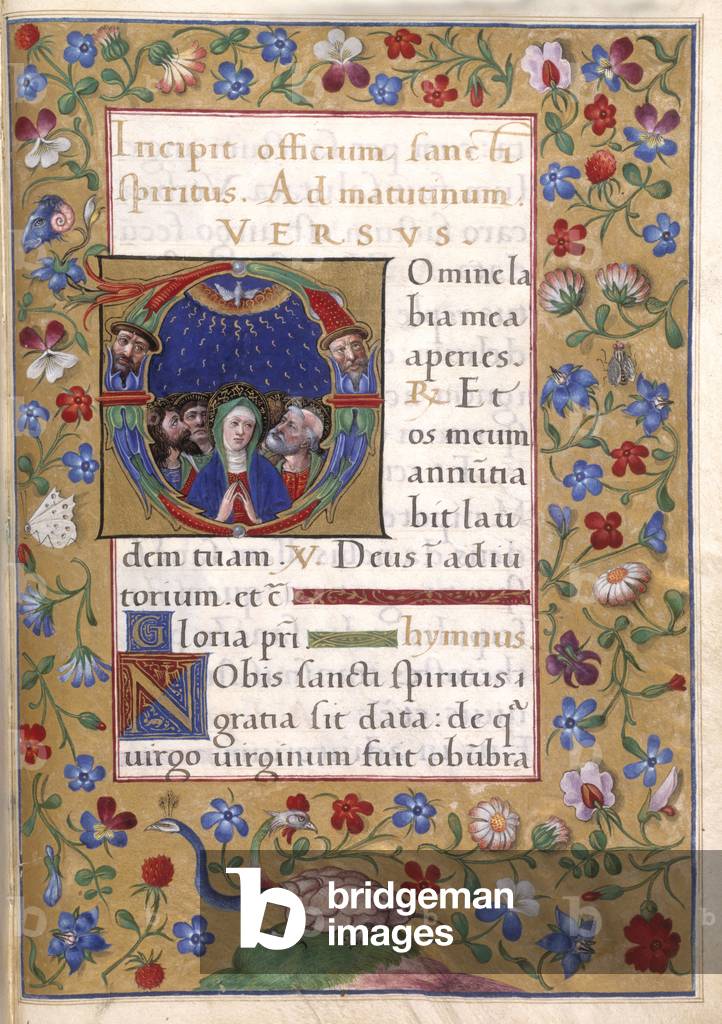 Incipit officium sancti
spiritus. Ad matutinum.
VERSVS.
DOmine la
bia mea
aperies.
℟. Et
os meum
annūtia
bit lau
dem tuam. ℣. Deus ī adiu
torium. et c̄
Gloria pr̄i. hymnus
NObis sancti spiritus
gratia sit data: de qͣ
uirgo uirginum fuit obūbra
bridgeman
images